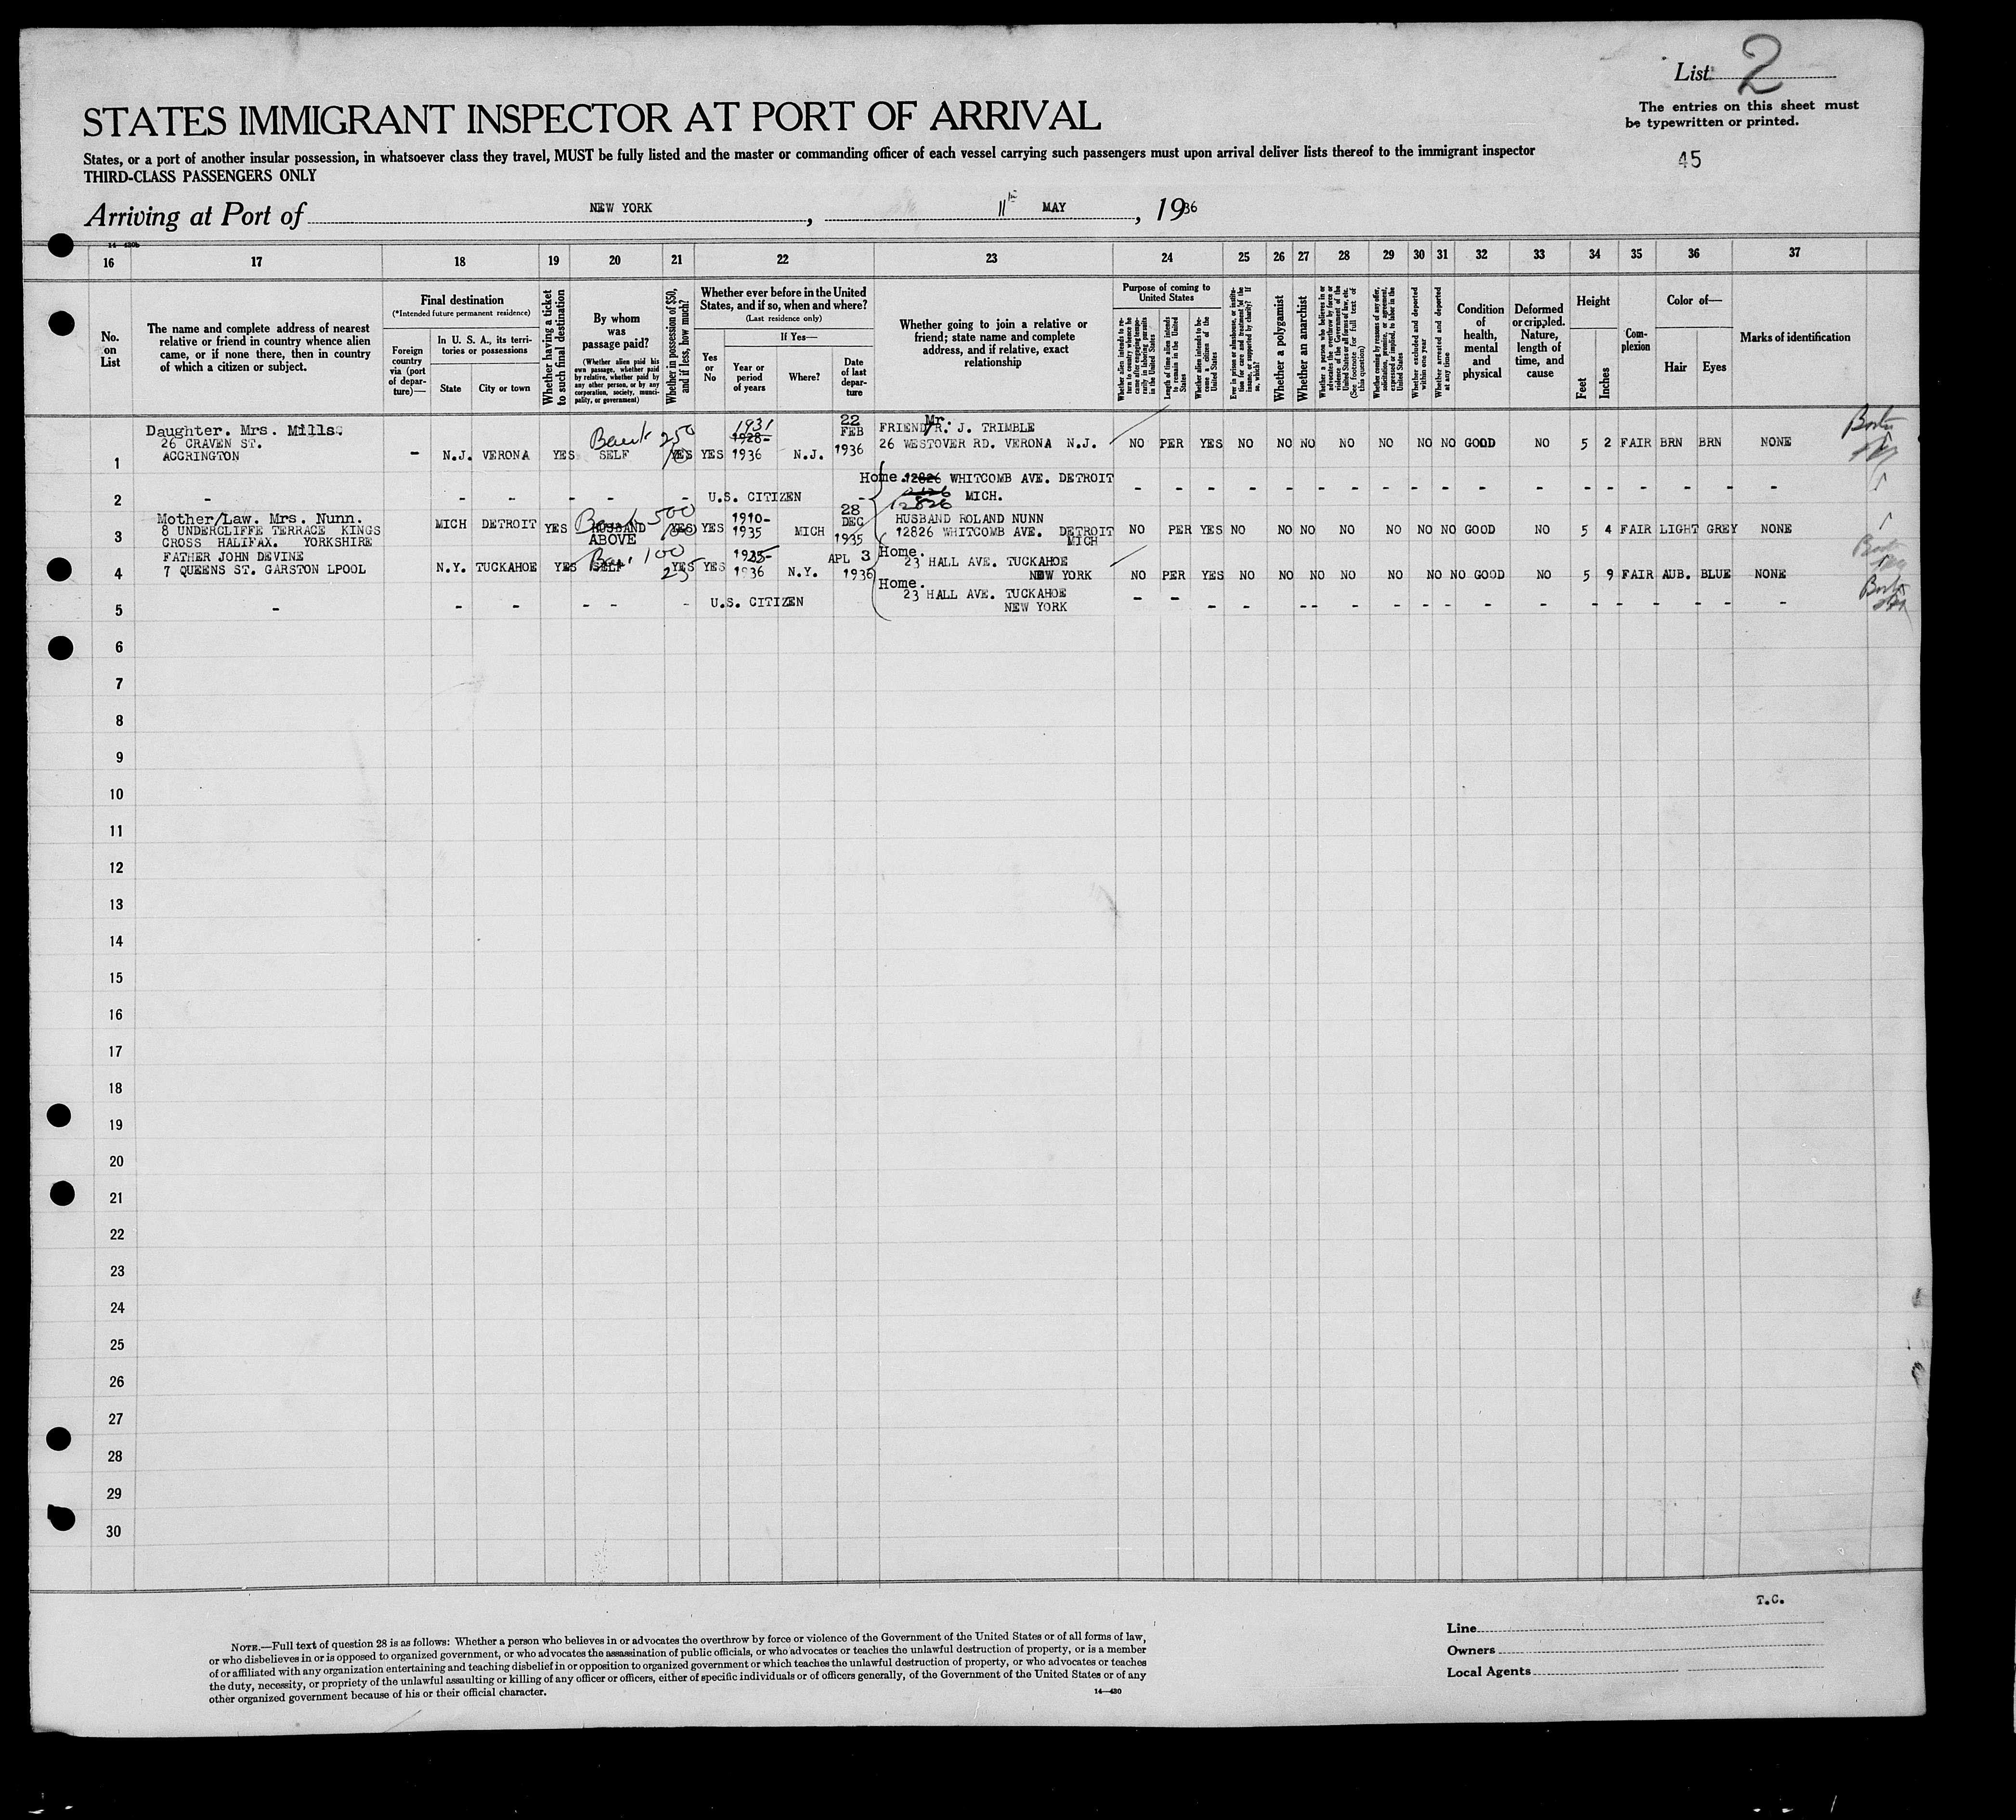 List 2
The entries on this sheet must
be typewritten or printed.
45
STATES IMMIGRANT INSPECTOR AT PORT OF ARRIVAL
States, or a port of another insular possession, in whatsoever class they travel, MUST be fully listed and the master or commanding officer of each vessel carrying such passengers must upon arrival deliver lists thereof to the immigrant inspector
THIRD-CLASS PASSENGERS ONLY
Arriving at Port of NEW YORK, 11th MAY, 1936
14—430b
16 17 18 19 20 21 22 23 24 25 26 27 28 29 30 31 32 33 34 35 36 37
No. on List
The name and complete address of nearest
relative or friend in country whence alien
came, or if none there, then in country
of which a citizen or subject.
Final destination
(*Intended future permanent residence)
Foreign country via (port of departure)—
In U. S. A., its territories or possessions
State
City or town
Whether having a ticket to such final destination
By whom was passage paid?
(Whether alien paid his own passage, whether paid by relative, whether paid by any other person, or by any corporation, society, municipality, or government)
Whether in possession of $50, and if less, how much?
Whether ever before in the United States, and if so, when and where?
(Last residence only)
Yes or No
If Yes—
Year or period of years
Where?
Date of last departure
Whether going to join a relative or
friend; state name and complete
address, and if relative, exact
relationship
Purpose of coming to United States
Whether alien intends to return to country whence he came after engaging temporarily in laboring pursuits in the United States
Length of time alien intends to remain in the United States
Whether alien intends to become a citizen of the United States
Ever in prison or almshouse, or institution for care and treatment of the insane, or supported by charity? If so, which?
Whether a polygamist
Whether an anarchist
Whether a person who believes in or advocates the overthrow by force or violence of the Government of the United States or all forms of law, etc. (See footnote for full text of this question)
Whether coming by reasons of any offer, solicitation, promise, or agreement, expressed or implied, to labor in the United States
Whether excluded and deported within one year
Whether arrested and deported at any time
Condition of health, mental and physical
Deformed or crippled. Nature, length of time, and cause
Height
Feet
Inches
Complexion
Color of—
Hair
Eyes
Marks of identification
1 Daughter. Mrs. Mills.
26 CRAVEN ST.
ACCRINGTON
- N.J. VERONA YES SELF 250 YES YES 1931 1928- 1936 N.J. 22 FEB 1936
FRIEND Mr. R. J. TRIMBLE
26 WESTOVER RD. VERONA N.J.
NO PER YES NO NO NO NO NO NO NO GOOD NO 5 2 FAIR BRN BRN NONE
2 - - - - - - U.S. CITIZEN -
Home. 12826 WHITCOMB AVE. DETROIT
12826 MICH.
- - - - - - - - - - - - - - - - - -
3 Mother/Law. Mrs. Nunn.
8 UNDERCLIFFE TERRACE KINGS
CROSS HALIFAX. YORKSHIRE
MICH DETROIT YES HUSBAND ABOVE 500 YES YES 1910- 1935 MICH 28 DEC 1935
HUSBAND ROLAND NUNN
12826 WHITCOMB AVE. DETROIT
MICH
NO PER YES NO NO NO NO NO NO NO GOOD NO 5 4 FAIR LIGHT GREY NONE
4 FATHER JOHN DEVINE
7 QUEENS ST. GARSTON LPOOL
N.Y. TUCKAHOE YES SELF 100 YES 25 YES 1925- 1936 N.Y. APL 3 1936
Home.
23 HALL AVE. TUCKAHOE
NEW YORK
NO PER YES NO NO NO NO NO NO NO GOOD NO 5 9 FAIR AUB. BLUE NONE
5 - - - - - - U.S. CITIZEN
Home.
23 HALL AVE. TUCKAHOE
NEW YORK
- - - - - - - - - - - - - - - - - -
6
7
8
9
10
11
12
13
14
15
16
17
18
19
20
21
22
23
24
25
26
27
28
29
30
T.C.
Line
Owners
Local Agents
NOTE.—Full text of question 28 is as follows: Whether a person who believes in or advocates the overthrow by force or violence of the Government of the United States or of all forms of law,
or who disbelieves in or is opposed to organized government, or who advocates the assassination of public officials, or who advocates or teaches the unlawful destruction of property, or is a member
of or affiliated with any organization entertaining and teaching disbelief in or opposition to organized government or which teaches the unlawful destruction of property, or who advocates or teaches
the duty, necessity, or propriety of the unlawful assaulting or killing of any officer or officers, either of specific individuals or of officers generally, of the Government of the United States or of any
other organized government because of his or their official character.
14—430